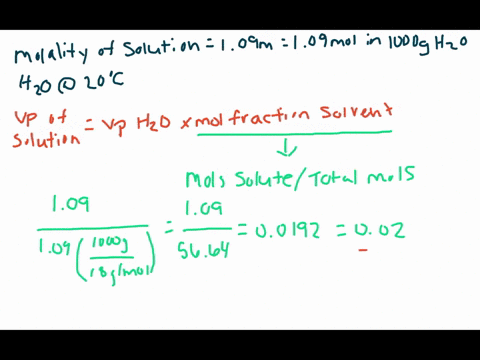 Molality of Solution = 1.09m = 1.09mol in 1000g H2O
H2O @ 20°C
Vp of Solution = Vp H2O x mol fraction Solvent
↓
Mols Solute/Total mols
1.09 / 1.09 (1000g / 18g/mol) = 1.09 / 56.64 = 0.0192 = 0.02